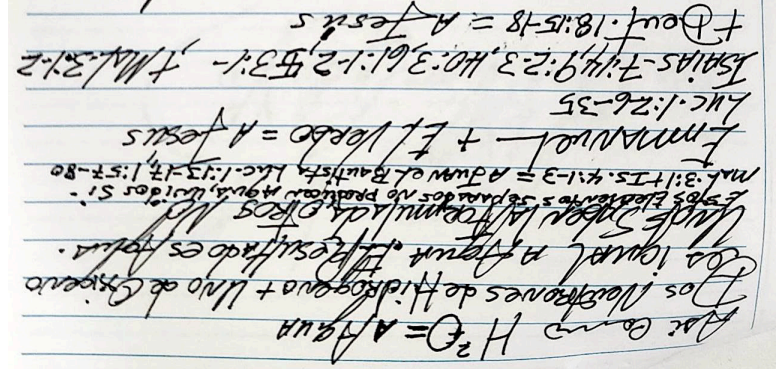 Asi como H²O = A Agua
Dos Neutrones de Hidrogeno + Uno de Oxigeno
es igual A Agua. El Resultado es Aqua.
Uno E Saben la formula OtROS NO
ESTOS Elementos separados no producen Aqua, Unidos Si.
Mal. 3:1 + IS. 4:1-3 = A Juan el Bautista Luc. 1:13-17, 1:57-80
Emmanuel + El Verbo = A Jesus
Luc. 1:26-35
ISAIAS-7:14, 9:2-3, 40:3, 61:1-2, 53:1- , + Mal. 3:1-2
+ Deut. 18:15-18 = A Jesus